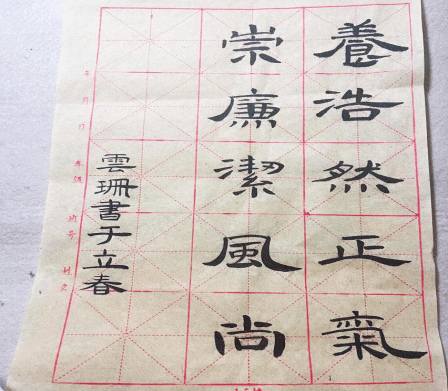 養浩然正氣
崇廉潔風尚
雲珊書于立春
年 月 日
年級
姓名